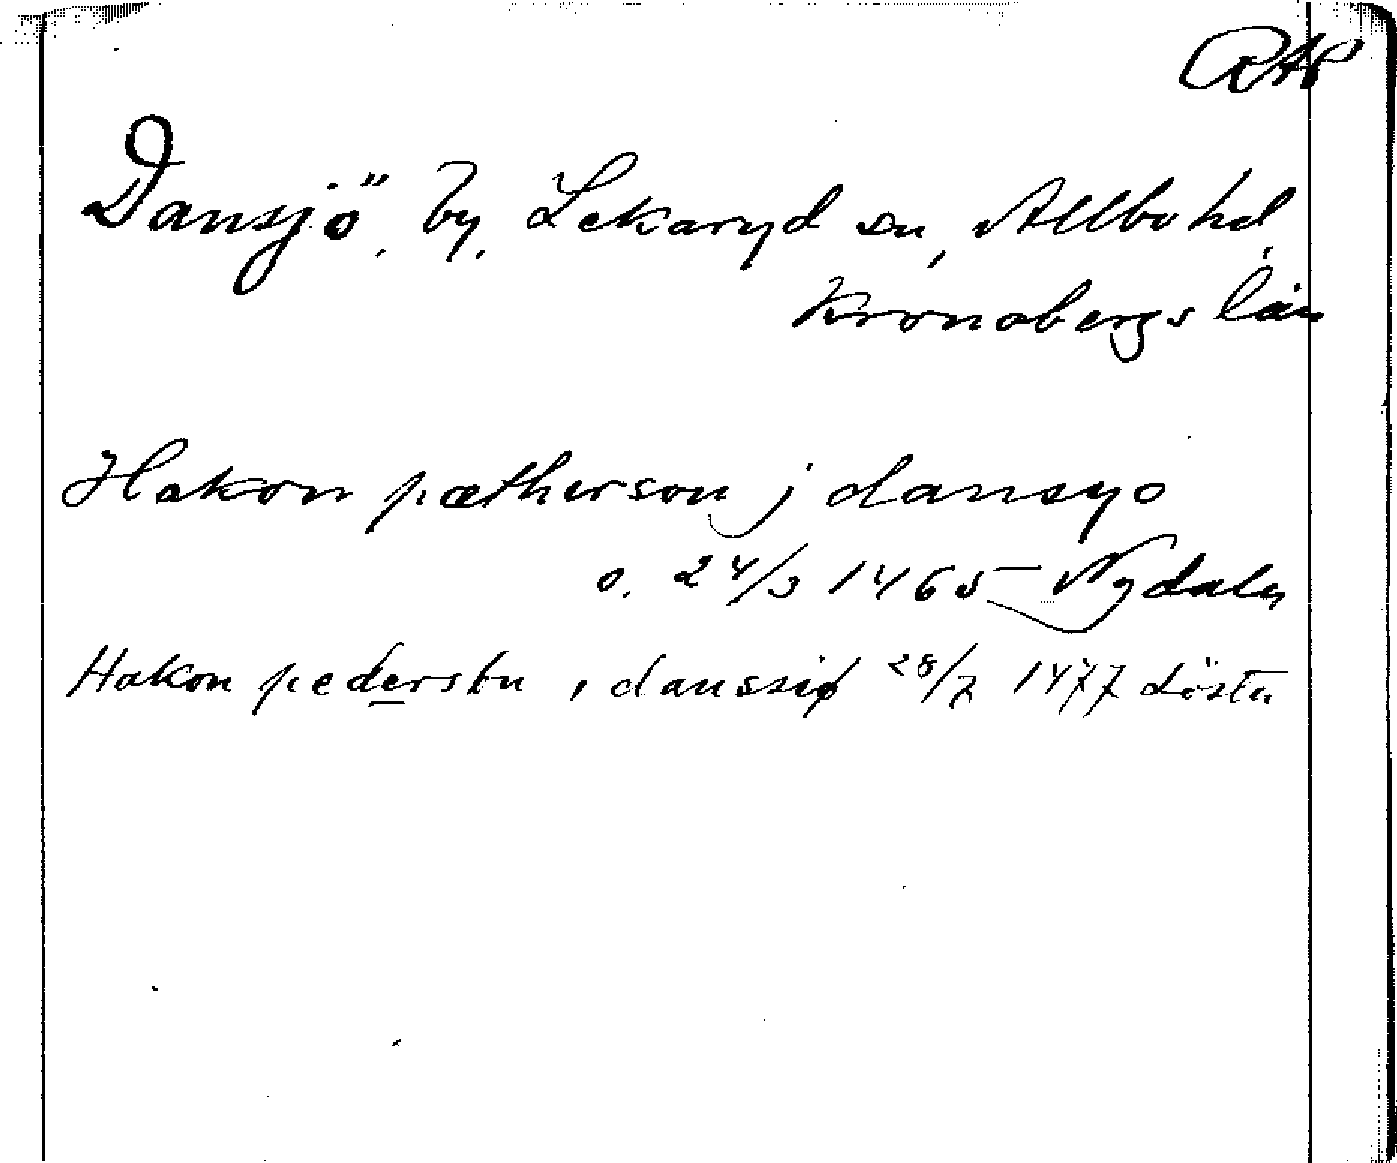 RAP
Dansjö, by, Lekaryd sn, Allbo hd,
Kronobergs län
Hakon pætherson j dansyo
o. 24/3 1465 Nydala
Hakon pederson i danssiø 28/7 1477